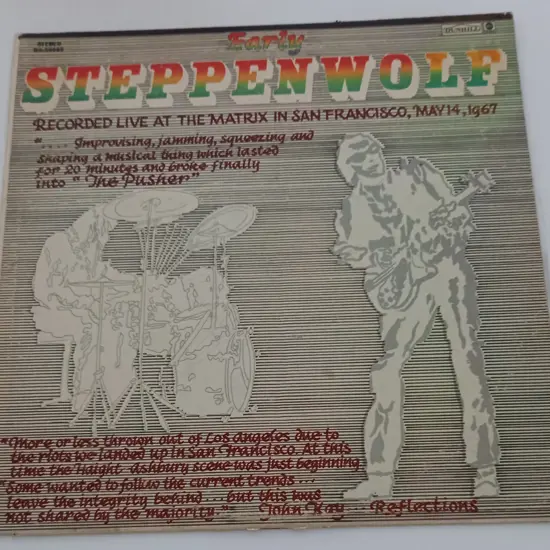 Early
STEREO
DUNHILL
STEPPENWOLF
RECORDED LIVE AT THE MATRIX IN SAN FRANCISCO, MAY 14, 1967
".... Improvising, jamming, squeezing and
shaping a musical thing which lasted
for 20 minutes and broke finally
into "The Pusher"
"More or less thrown out of Los Angeles due to
the riots we landed up in San Francisco. At this
time the Haight ashbury scene was just beginning
"Some wanted to follow the current trends...
leave the integrity behind... but this was
not shared by the majority." John Kay... Reflections